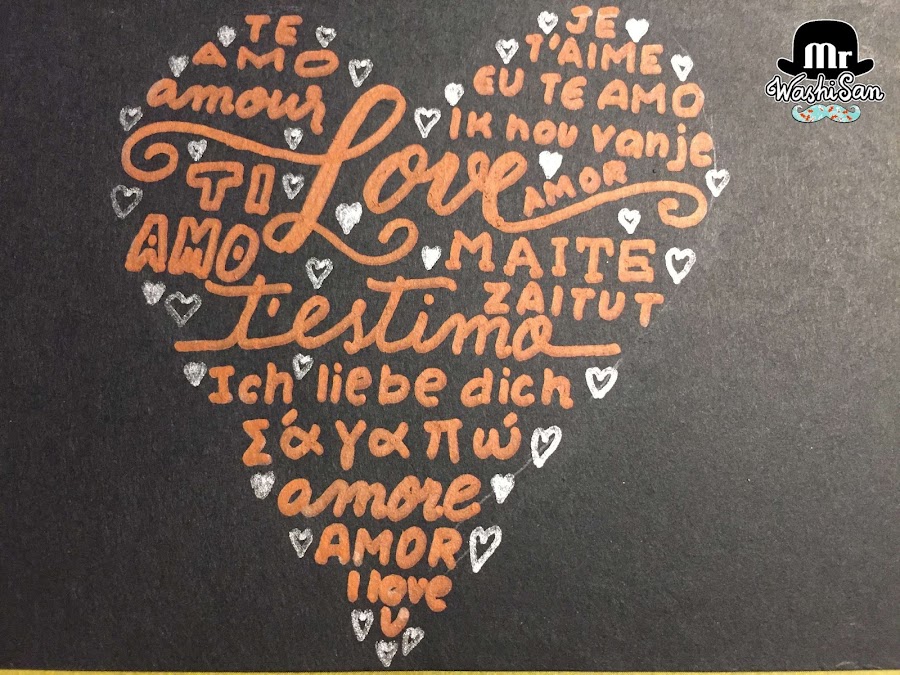 TE
AMO
amour
JE
T'AIME
EU TE AMO
Ik hou van je
Love
AMOR
TI
AMO
MAITE
ZAITUT
t'estimo
Ich liebe dich
Σάγαπώ
amore
AMOR
I love
U
Mr
WashiSan